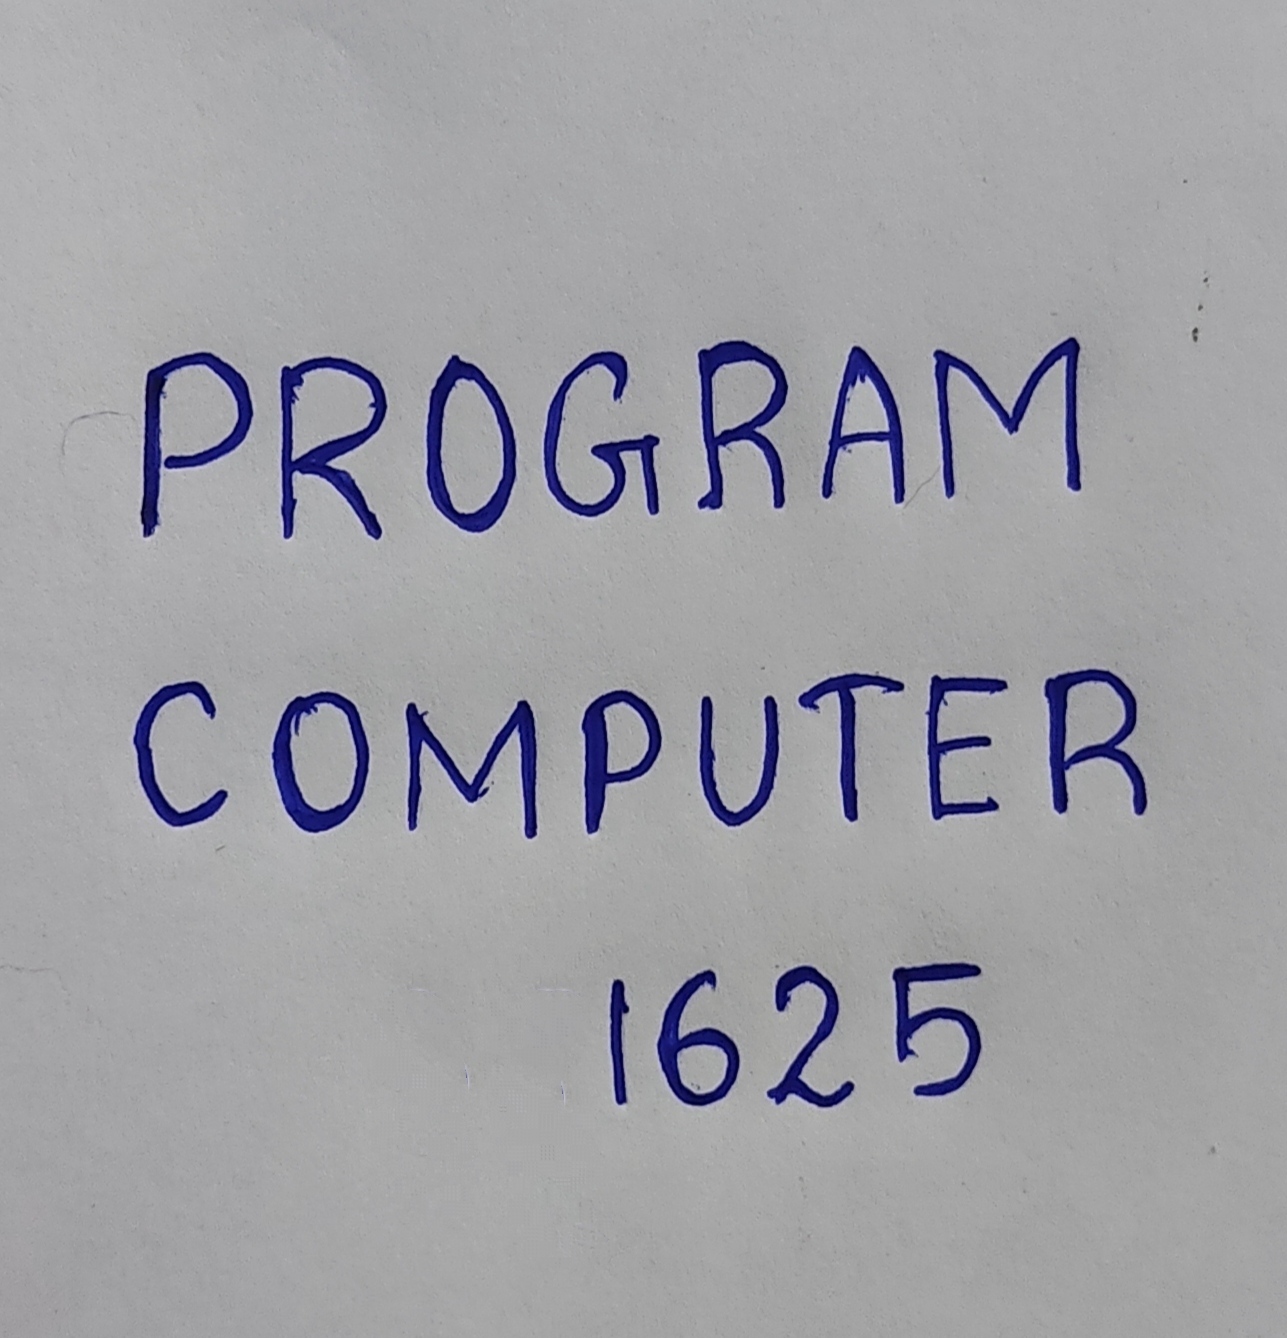 PROGRAM
COMPUTER
1625